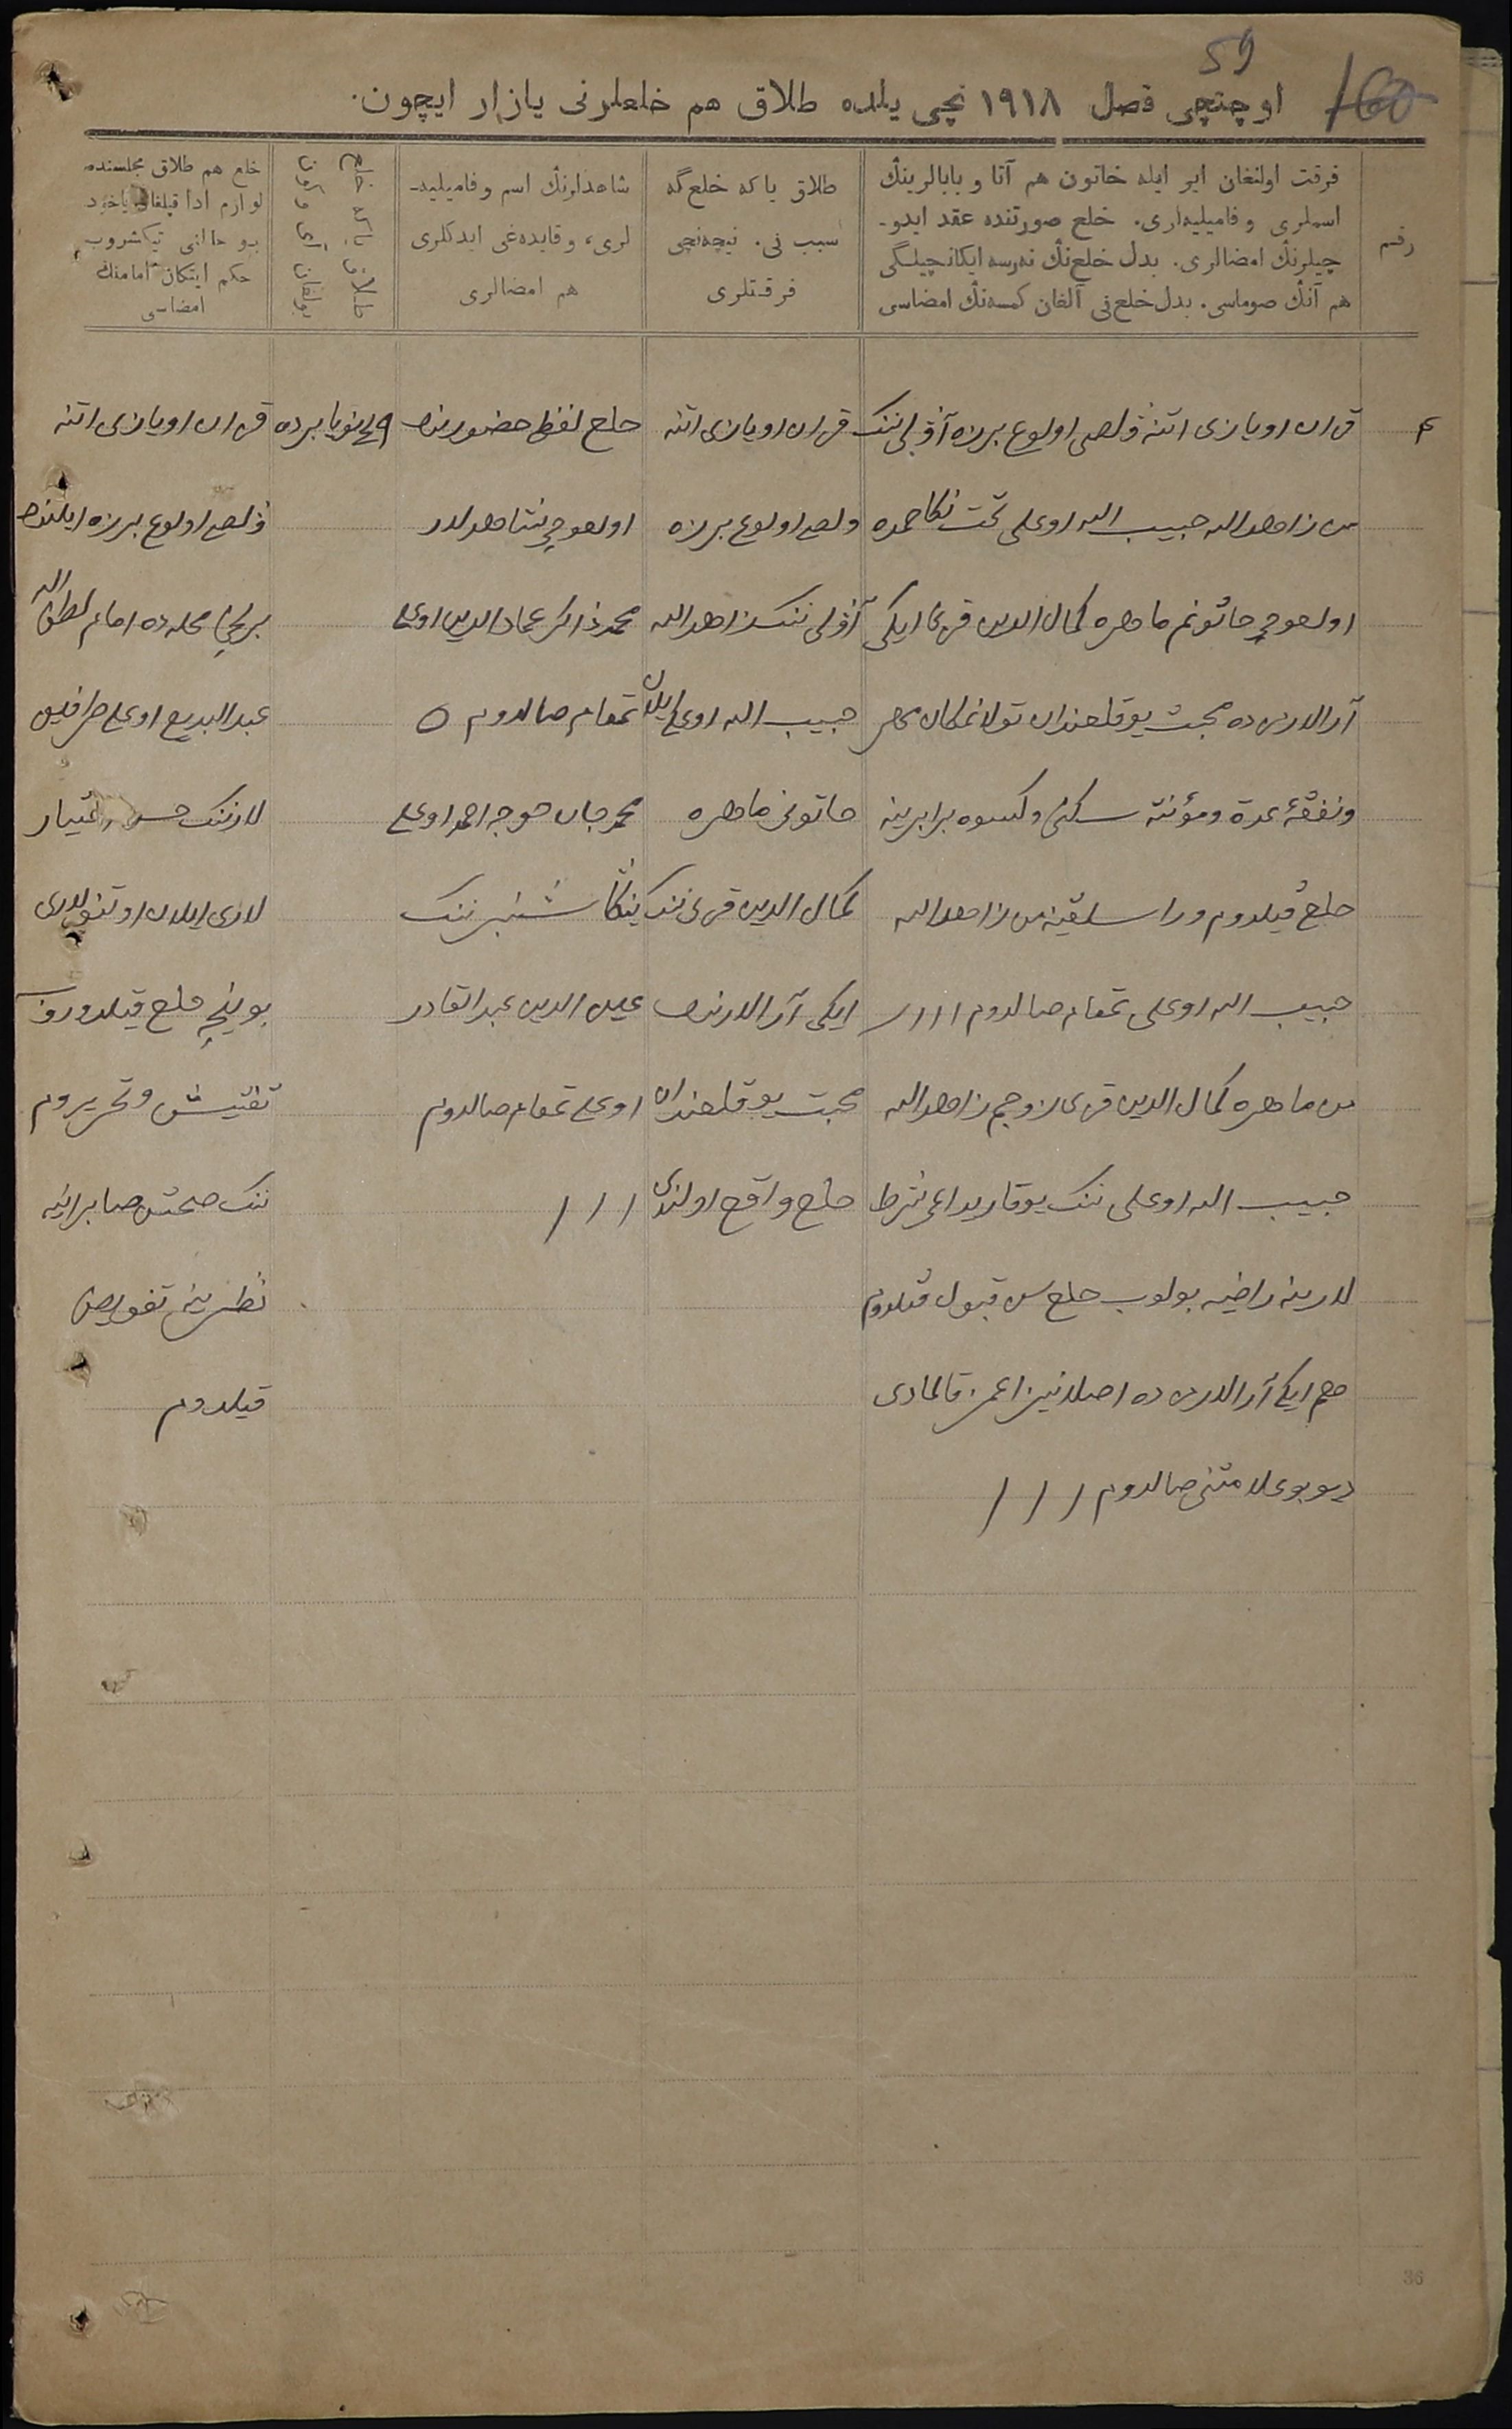 59
160
اوچنچی فصل ۱۹۱۸ نچی یلده طلاق هم خلعلرنی یازار ایچون.
رقم
فرقت اولنغان ایر ایله خاتون هم آتا و بابالرینڭ
اسملری و فامیلیه‌لری. خلع صورتنده عقد ایدو-
چیلرنڭ امضالری. بدل خلع‌نڭ نه‌رسه ایکانچیلگی
هم آنڭ صوماسی. بدل خلع‌نی آلغان کمسه‌نڭ امضاسی
طلاق یا که خلع گه
سبب نی. نیچه‌نچی
فرقتلری
شاهدلرنڭ اسم و فامیلیه-
لری، و قایده‌غی ایدکلری
هم امضالری
طلاق یا که خلع
بولغان آی و کون
خلع هم طلاق مجلسنده
لوازم ادا قیلغان یاخود
بو حالنی تیکشروب
حکم ایتکان امامنڭ
امضاسی
۴
قزان اویازی اتنه ولصی اولوغ برزه آولی ننک
من زاهدالله حبیب الله اوغلی تحت نکاحمده
اولغوچی خاتونم ماهره کمال الدین قزی ایکی
آرالارمزده محبت یوقلغندان تولانمکان مهر
ونفقهٔ عدة ومؤنته سکنی وکسوه برابرینه
خلع قیلدوم من زاهدالله
حبیب الله اوغلی تمغام صالدوم ااا
من ماهره کمال الدین قزی زوجم زاهدالله
حبیب الله اوغلی ننک یوقاریداغی شرط
لارینه راضیه بولوب خلع‌سن قبول قیلدوم
هم ایکی آرالارمزده اصلا نیزاعمز قالمادی
دیو بو علامتنی صالدوم ///
قزان اویازی اتنه
ولصی اولوغ برزه
آولی ننک زاهدالله
حبیب الله اوغلی ایلان
خاتونی ماهره
کمال الدین قزی ننک
ایکی آرالارنده
محبت یوقلغندان
خلع واقع اولندی
خلع لفظی حضورینده
اولغوچی شاهدلار
محمدذاکر عمادالدین اوغلی
تمغام صالدوم ٥
محمدجان خوجه احمد اوغلی
ننک
عین الدین عبدالقادر
اوغلی تمغام صالدوم
///
نویابرده
قزان اویازی اتنه
ولصی اولوغ برزه ایلنده
برنچی محله‌ده امام لطف الله
عبدالبدیع اوغلی طرافیق
لارننک حسن اختیار
لاری ایلان اوتنولاری
بوینچه خلع قیلدوروب
تفتیش و تحریروم
ننک صحتی صابر اینه
نظرینه تفویض
قیلدوم
36